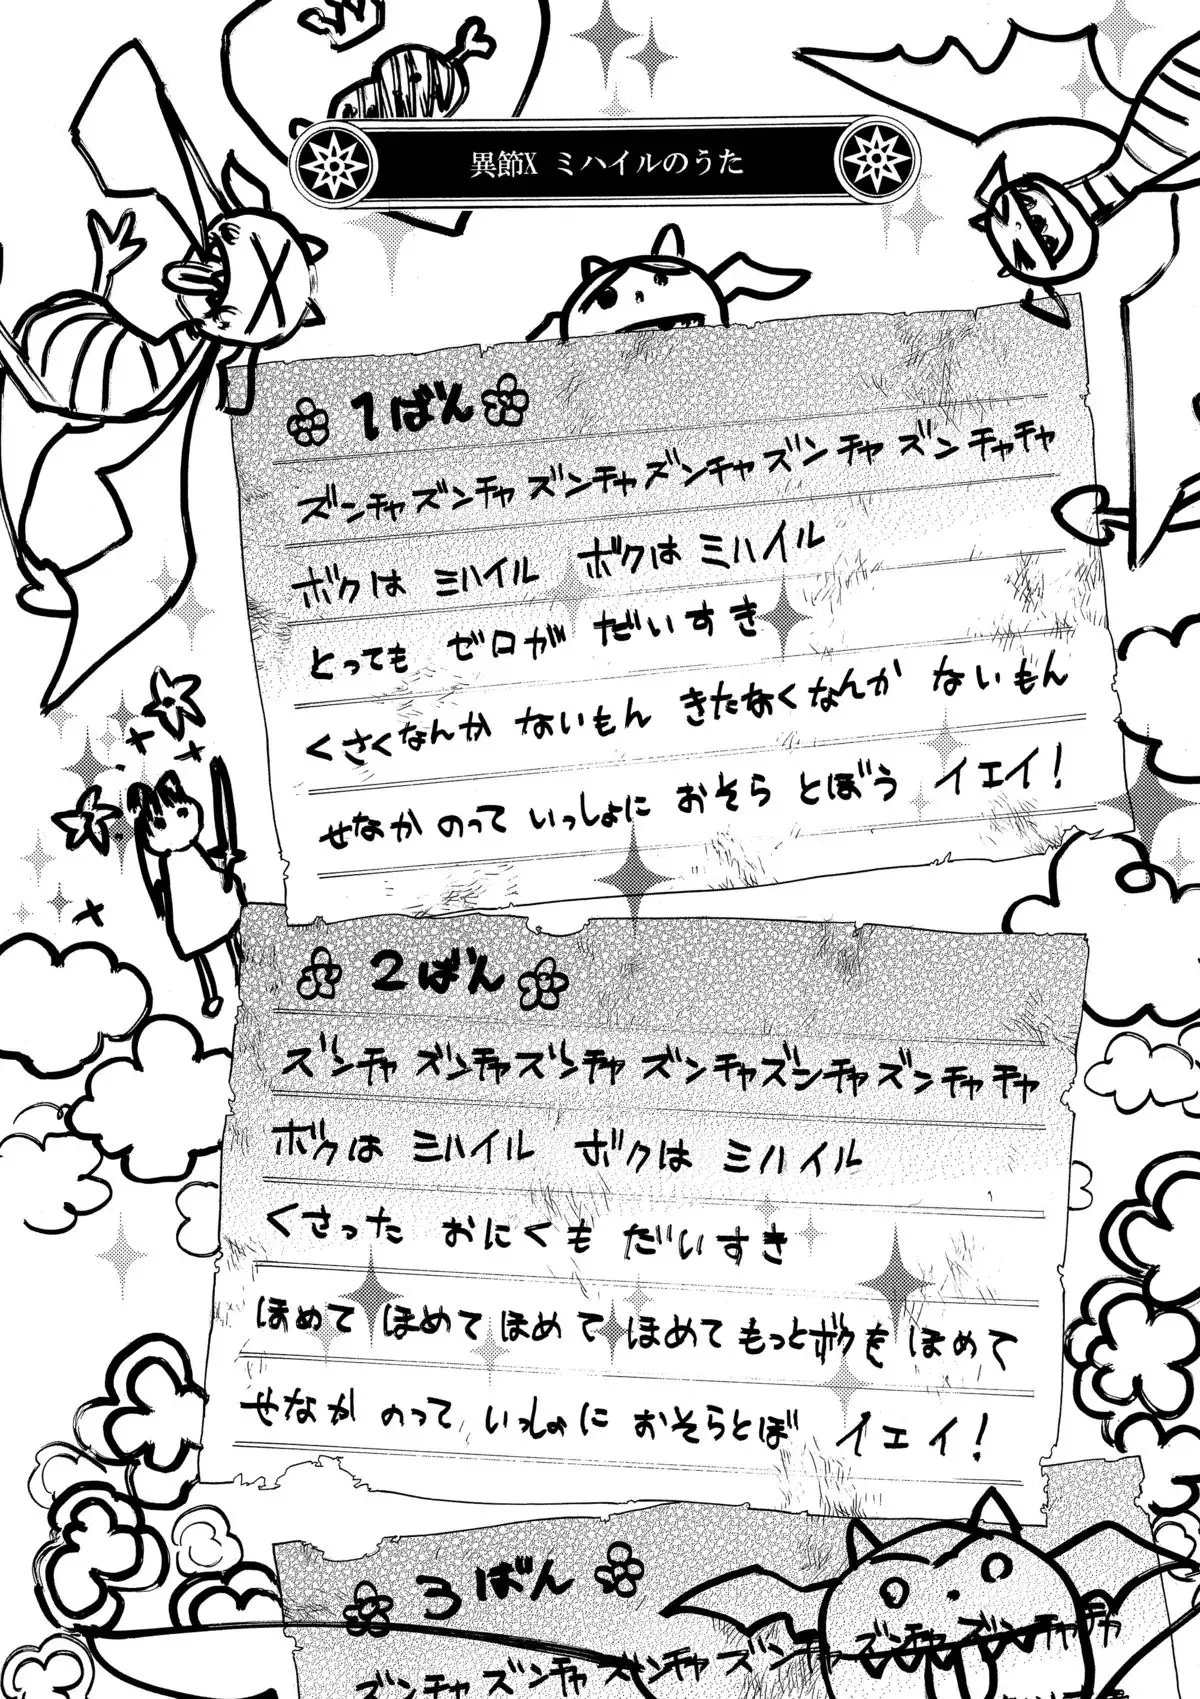 異節X ミハイルのうた
1ばん
ズンチャズンチャズンチャズンチャズンチャズンチャチャ
ボクは ミハイル ボクは ミハイル
とっても ゼロが だいすき
くさくなんか ないもん きたなくなんか ないもん
せなか のって いっしょに おそら とぼう イエイ!
2ばん
ズンチャ ズンチャズンチャ ズンチャズンチャズンチャチャ
ボクは ミハイル ボクは ミハイル
くさった おにくも だいすき
ほめて ほめて ほめて ほめて もっとボクを ほめて
せなか のって いっしょに おそらとぼ イエイ!
3ばん
ズンチャ ズンチャ ズンチャ ズンチャ ズンチャ ズンチャチャ